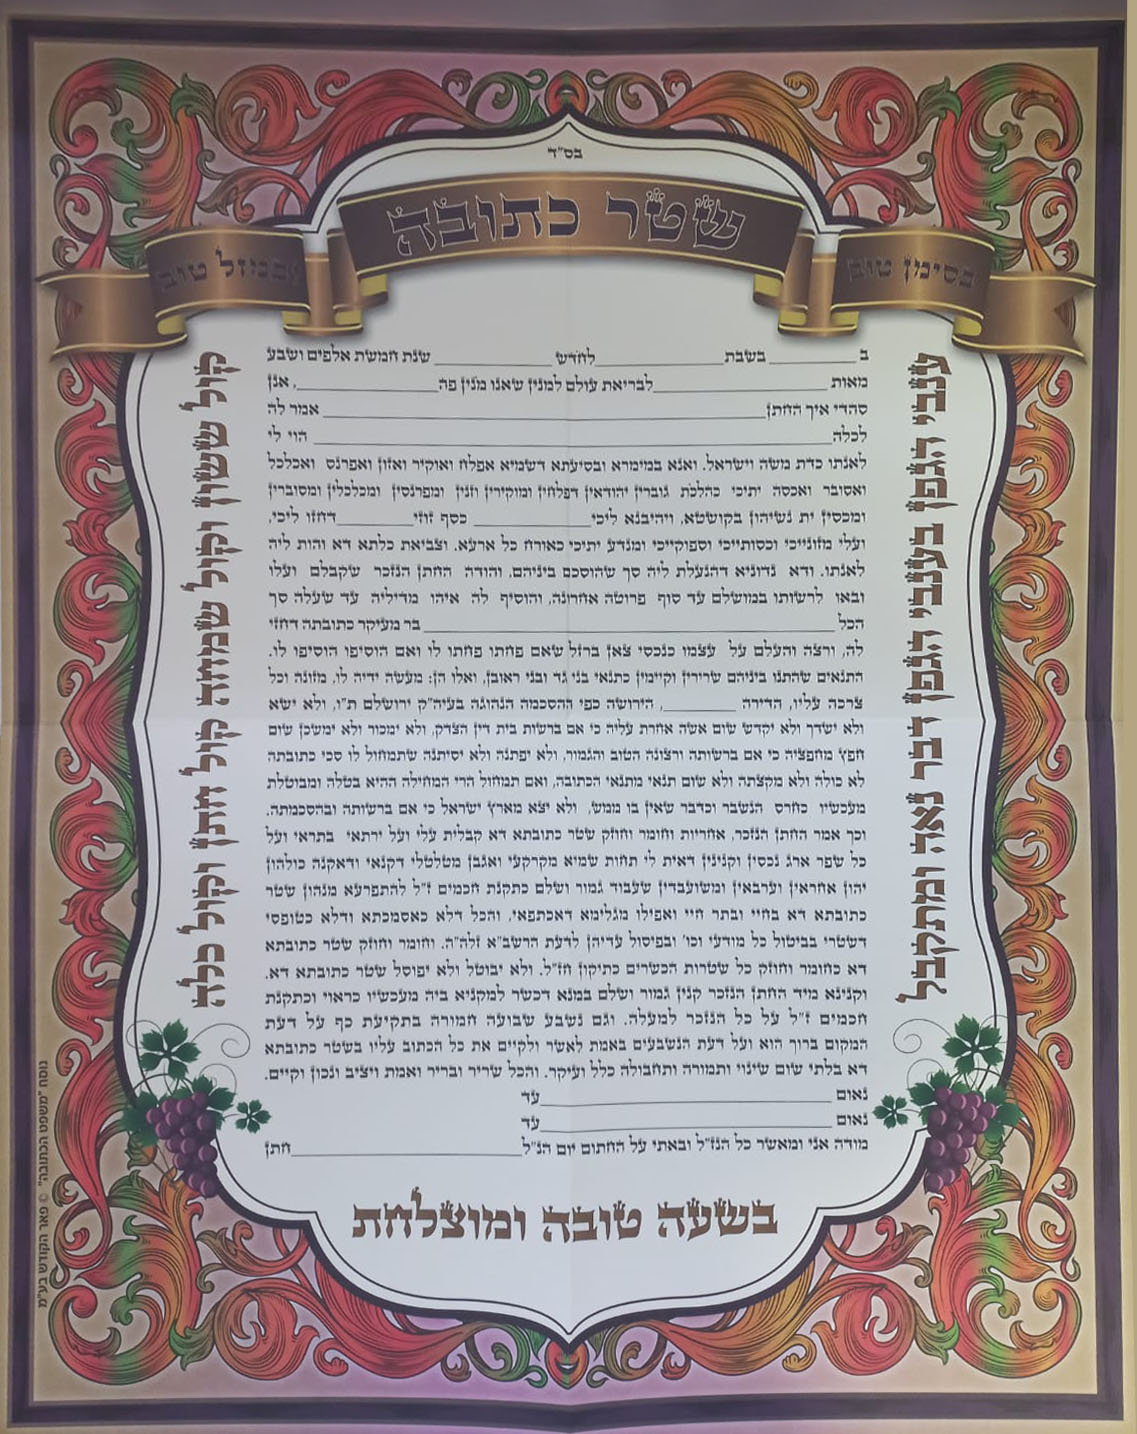 בס"ד
שטר כתובה
בסימן טוב
ובמזל טוב
ב ____________ בשבת ____________ לחדש ____________ שנת חמשת אלפים ושבע
מאות ____________ לבריאת עולם למנין שאנו מנין פה ____________, אנן
סהדי איך החתן ____________ אמר לה
לכלה ____________ הוי לי
לאנתו כדת משה וישראל. ואנא במימרא ובסיעתא דשמיא אפלח ואוקיר ואזון ואפרנס ואכלכל
ואסובר ואכסה יתיכי כהלכת גוברין יהודאין דפלחין ומוקירין וזנין ומפרנסין ומכלכלין ומסוברין
ומכסין ית נשיהון בקושטא. ויהיבנא ליכי ____________ כסף זוזי ____________ דחזו ליכי,
ועלי מזונייכי וכסותייכי וספוקייכי ומנדע יתיכי כאורח כל ארעא. וצביאת כלתא דא והות ליה
לאנתו. ודא נדוניא דהנעלת ליה סך שהוסכם ביניהם. והודה החתן הנזכר שקבלם ועלו
ובאו לרשותו במושלם עד סוף פרוטה אחרונה, והוסיף לה איהו מדיליה עד שעלה סך
הכל ____________ בר מעיקר כתובתה דחזי
לה, ורצה והעלם על עצמו כנכסי צאן ברזל שאם פחתו פחתו לו ואם הוסיפו הוסיפו לו.
התנאים שהתנו ביניהם שרירין וקיימין כתנאי בני גד ובני ראובן, ואלו הן: מעשה ידיה לו, מזונה וכל
צרכה עליו, הדירה ____________, הירושה כפי ההסכמה הנהוגה בעיה"ק ירושלם ת"ו, ולא ישא
ולא ישדך ולא יקדש שום אשה אחרת עליה כי אם ברשות בית דין הצדק, ולא ימכור ולא ימשכן שום
חפץ מחפציה כי אם ברשותה ורצונה הטוב והגמור, ולא יפתנה ולא יסיתנה שתמחול לו סכי כתובתה
לא כולה ולא מקצתה ולא שום תנאי מתנאי הכתובה, ואם תמחול הרי המחילה ההיא בטלה ומבוטלת
מעכשיו כחרס הנשבר וכדבר שאין בו ממש, ולא יצא מארץ ישראל כי אם ברשותה ובהסכמתה.
וכך אמר החתן הנזכר, אחריות וחומר וחוזק שטר כתובתא דא קבלית עלי ועל ירתאי בתראי ועל
כל שפר ארג נכסין וקנינין דאית לי תחות שמיא מקרקעי ואגבן מטלטלי דקנאי ודאקנה כולהון
יהון אחראין וערבאין ומשועבדין שעבוד גמור ושלם כתקנת חכמים ז"ל להתפרעא מנהון שטר
כתובתא דא בחיי ובתר חיי ואפילו מגלימא דאכתפאי, והכל דלא כאסמכתא ודלא כטופסי
דשטרי בביטול כל מודעי וכו' ובפיסול עדיהן לדעת הרשב"א זלה"ה. וחומר וחוזק שטר כתובתא
דא כחומר וחוזק כל שטרות הכשרים כתיקון חז"ל. ולא יבוטל ולא יפוסל שטר כתובתא דא.
וקנינא מיד החתן הנזכר קנין גמור ושלם במנא דכשר למקניא ביה מעכשיו כראוי וכתקנת
חכמים ז"ל על כל הנזכר למעלה. וגם נשבע שבועה חמורה בתקיעת כף על דעת
המקום ברוך הוא ועל דעת הנשבעים באמת לאשר ולקיים את כל הכתוב עליו בשטר כתובתא
דא בלתי שום שינוי ותמורה ותחבולה כלל ועיקר. והכל שריר ובריר ואמת ויציב ונכון וקיים.
נאום ____________ עד
נאום ____________ עד
מודה אני ומאשר כל הנז"ל ובאתי על החתום יום הנ"ל ____________ חתן
בשעה טובה ומוצלחת
ענבי הגפן בענבי הגפן דבר נאה ומתקבל
קול ששון וקול שמחה קול חתן וקול כלה
נוסח "משפט הכתובה" © פאר הקודש בע"מ